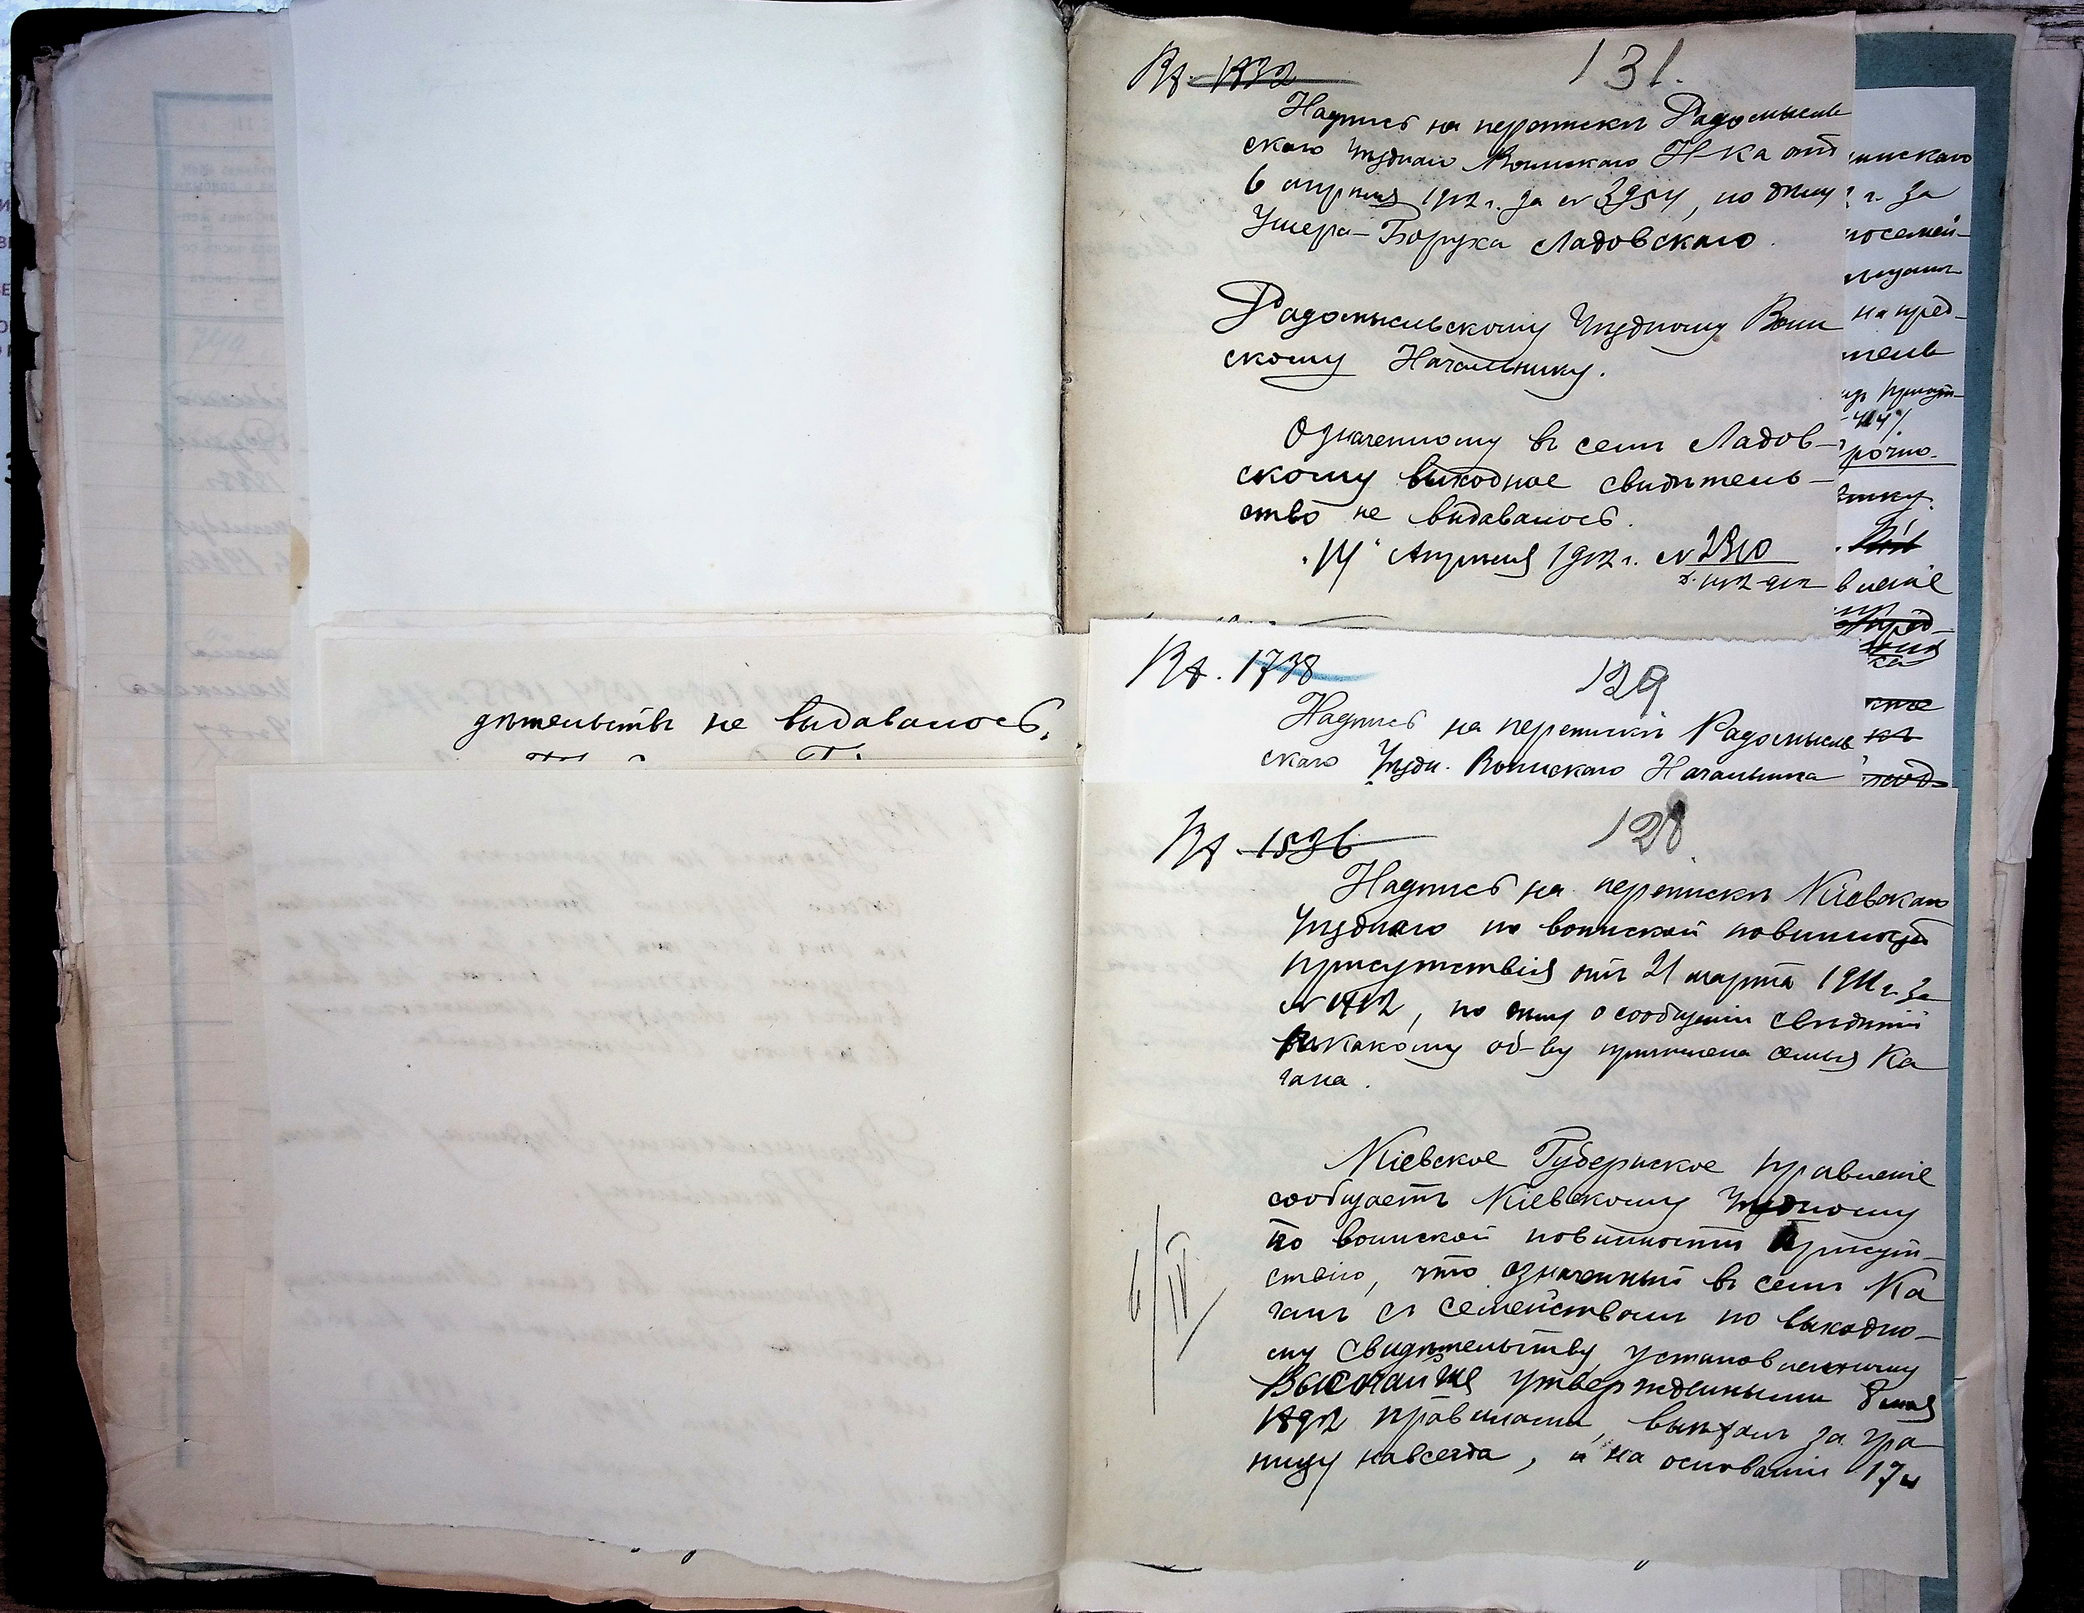 дѣтельствъ не выдавалось.
Вх. 1832
131.
Надпись на перепискѣ Радомысль
скаго Уѣзднаго Воинскаго Н-ка отъ
6 апрѣля 1912 г. за № 3954, по дѣлу
Ушера-Боруха Ладовскаго.
Радомысльскому Уѣздному Воин
скому Начальнику.
Означенному въ семъ Ладов-
скому выходное свидѣтель-
ство не выдавалось.
"14" Апрѣля 1912 г. № 2310
инскаго
г. за
посемей-
на пред-
тель
рочно.
нику.
вленіе
Вх. 1738
129
Надпись на перепискѣ Радомысль
скаго Уѣздн. Воинскаго Начальника
Вх. 1536
128
Надпись на перепискѣ Кіевскаго
Уѣзднаго по воинской повинности
присутствія отъ 21 марта 1911 г. за
№ 1712, по дѣлу о сообщеніи свѣдѣній
къ какому об-ву причислена семья Ка
гана.
Кіевское Губернское Правленіе
сообщаетъ Кіевскому Уѣздному
по воинской повинности Присут-
ствію, что означенный въ семъ Ка
ганъ съ семействомъ по выходно-
му свидѣтельству, установленному
Высочайше утвержденными 8 мая
1892 правилами, выѣхалъ за гра
ницу навсегда, и на основаніи 17 п
6/IV